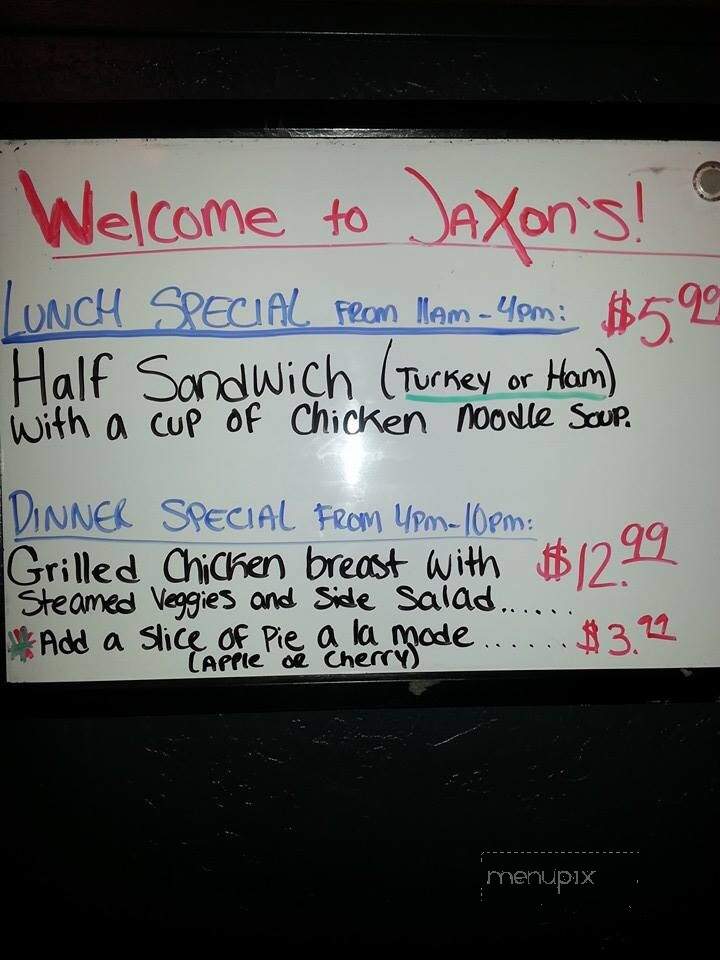 Welcome to JAXon's!
LUNCH SPECIAL FROM 11AM-4PM: $5.99
Half Sandwich (Turkey or Ham)
with a cup of Chicken Noodle Soup.
DINNER SPECIAL FROM 4PM-10PM:
Grilled Chicken breast with $12.99
Steamed Veggies and Side Salad......
Add a Slice of Pie a la mode....... $3.99
(Apple or Cherry)
menupix